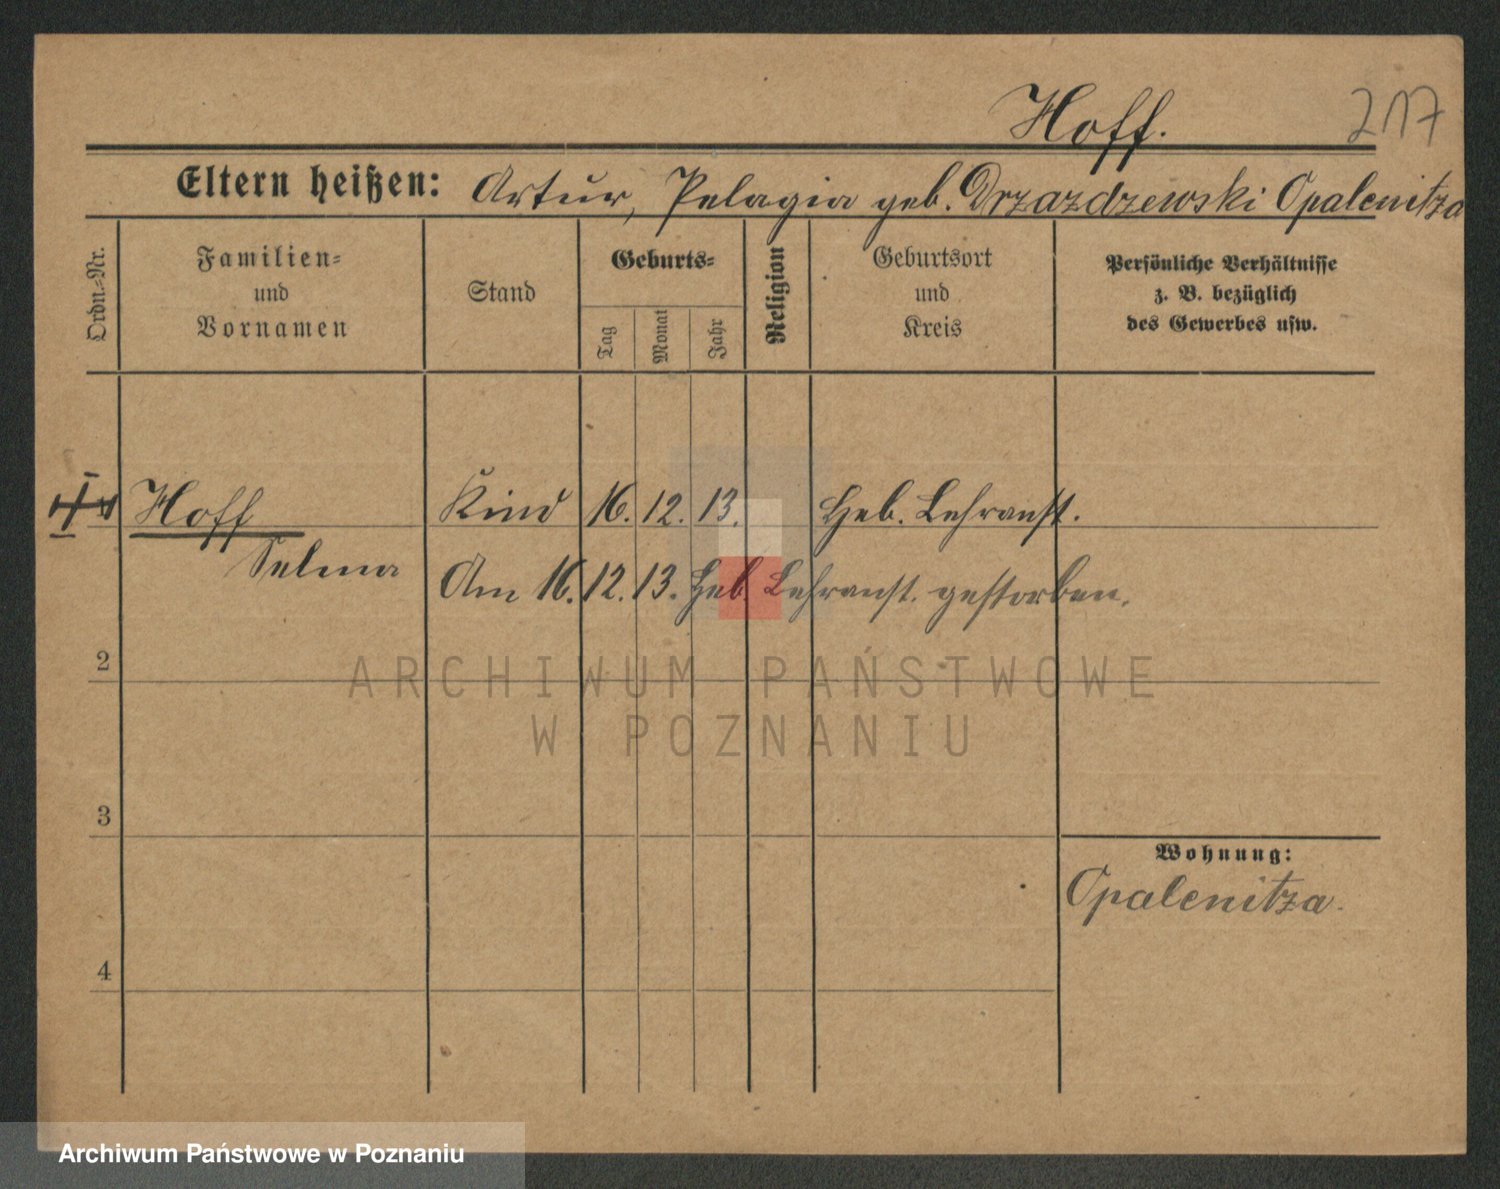 Hoff.
217
Eltern heißen: Artur, Pelagia geb. Drzazdzewski Opalenitza
Ordn.-Nr.
Familien-
und
Vornamen
Stand
Geburts-
Tag
Monat
Jahr
Religion
Geburtsort
und
Kreis
Persönliche Verhältnisse
z. B. bezüglich
des Gewerbes usw.
Hoff Kind 16. 12. 13. Heb. Lehranst.
Selma Am 16. 12. 13. Heb. Lehranst. gestorben.
2
3
4
Wohnung:
Opalenitza.
ARCHIWUM PAŃSTWOWE
W POZNANIU
Archiwum Państwowe w Poznaniu